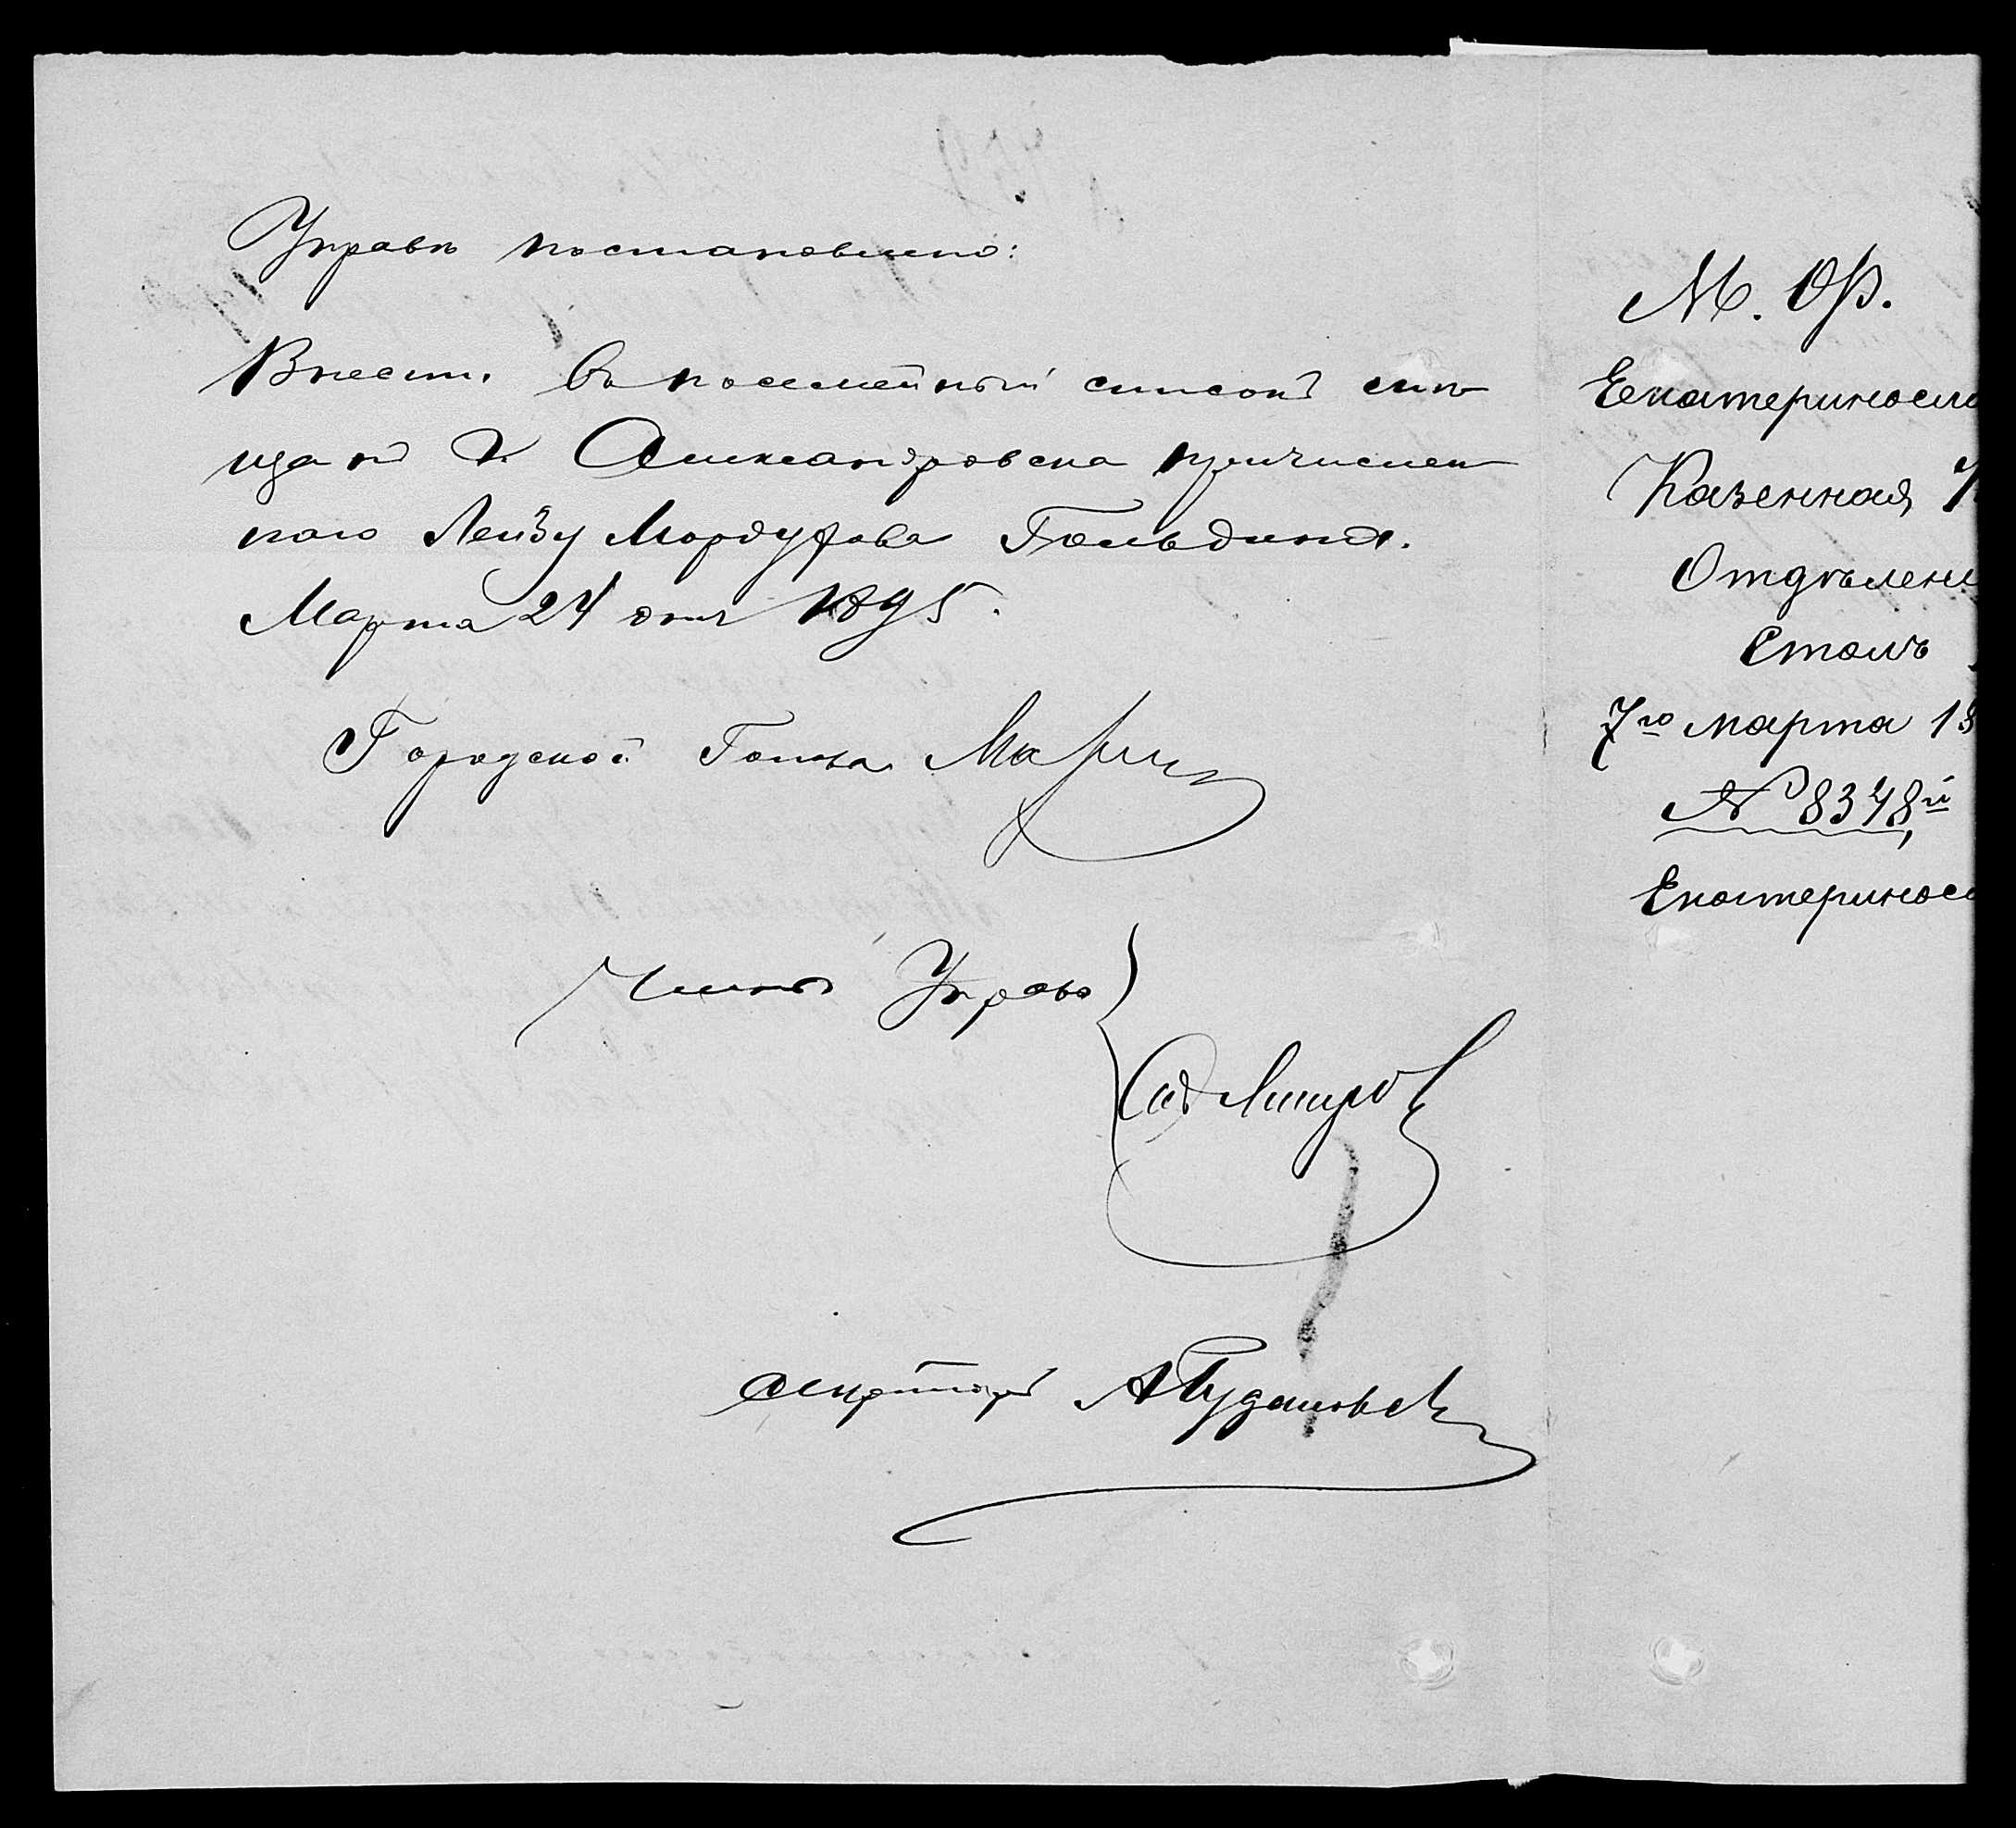 Управа постановила:
Внести въ посемейный списокъ мѣ-
щанъ г. Александровска причислен-
наго Лейзу Мордухова Гольдина.
Марта 24 дня 1895.
Городской Голова
Члены Управы
Секретарь
М. Ф.
Екатериносла
Казенная
Отдѣлені
Столъ
7го марта 18
№ 8348й
Екатеринос